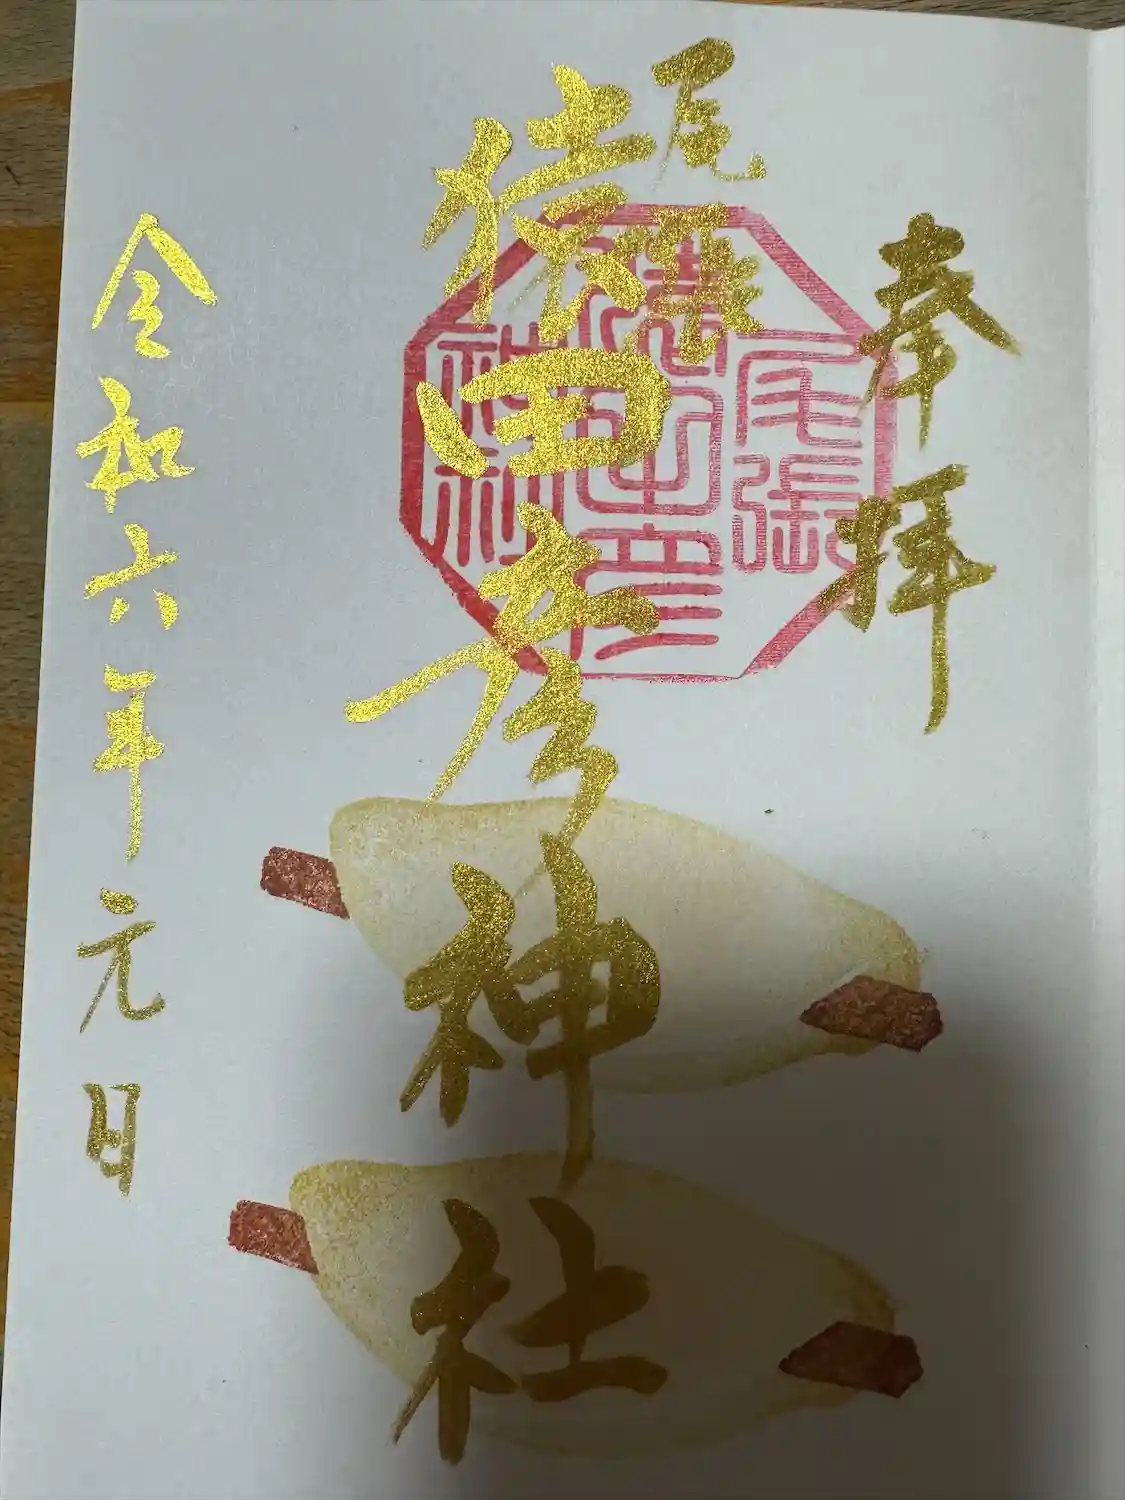 奉拝
尾張
猿田彦神社
尾張
猿田彦
神社
令和六年元日